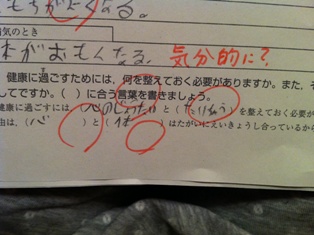 もちがよくなる。
気のとき
体がおもくなる、 気分的に？
健康に過ごすためには、何を整えておく必要がありますか。また、そ
してですか。( )に合う言葉を書きましょう。
健康に過ごすには(心のじょうたい)と( )を整えておく必要が
由は、(心 )と(体 )はたがいにえいきょうし合っているから